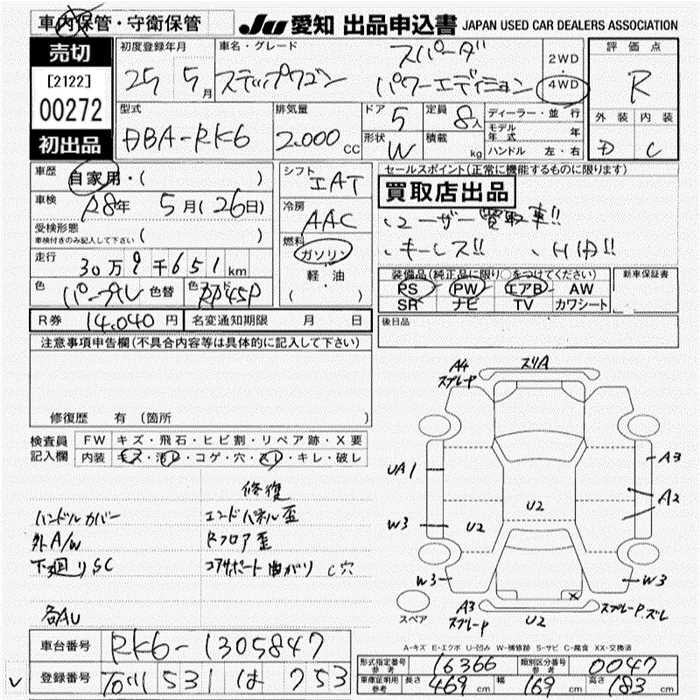 車内保管・守衛保管
JU 愛知 出品申込書 JAPAN USED CAR DEALERS ASSOCIATION
売切
[2122]
00272
初出品
初度登録年月
25 5月
車名・グレード
ステップワゴン スパーダ
パワーエディション
2WD
4WD
評価点
R
外装 内装
D C
型式
DBA-RK6
排気量
2.000 CC
ドア 5
定員 8人
形状 W
積載 kg
ディーラー・並行
モデル年式 年
ハンドル 左・右
車歴
自家用・( )
車検
R8年 5月(26日)
受検形態
車検付きのみ記入して下さい ( )
走行
30万9千651km
色 パープル 色替 色コード RP45P
シフト
IAT
冷房
AAC
燃料
ガソリン
軽・油
( )
セールスポイント(正常に機能するものに限ります)
買取店出品
、ユーザー買取車!!
、キーレス!! 、HID!!
装備品(純正品に限り○をつけてください)
PS PW エアB AW
SR ナビ TV カワシート
新車保証書
後日品
R券 14,040円 名変通知期限 月 日
注意事項申告欄(不具合内容等は具体的に記入して下さい)
修復歴 有(箇所 )
検査員
記入欄
FW キズ・飛石・ヒビ割・リペア跡・X要
内装 キズ・汚レ・コゲ・穴・スレ・キレ・破レ
修復
ハンドルカバー エンドパネル歪
外A/W Rフロア歪
下廻りSC コアサポート曲がり C穴
各AU
A4 スリA
スプレーP
UA1
A3
A2
U2
W3 U2
W3 W3
スペア
A3
スプレーP
U2
スプレーP.ズレ
A-キズ E-エクボ U-凹み W-補修跡 S-サビ C-腐食 XX-交換済
車台番号 RK6-1305847
登録番号 531 は 753
形式指定番号 参考 16366
類別区分番号 参考 0047
車庫証明用 参考 長さ 469cm 幅 169cm 高さ 183cm